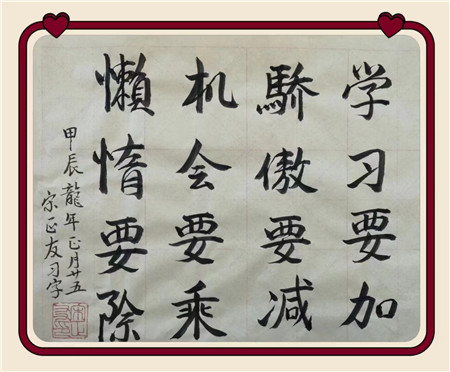 学习要加
驕傲要減
机会要乘
懶惰要除
甲辰龍年正月廿五
宗正友习字